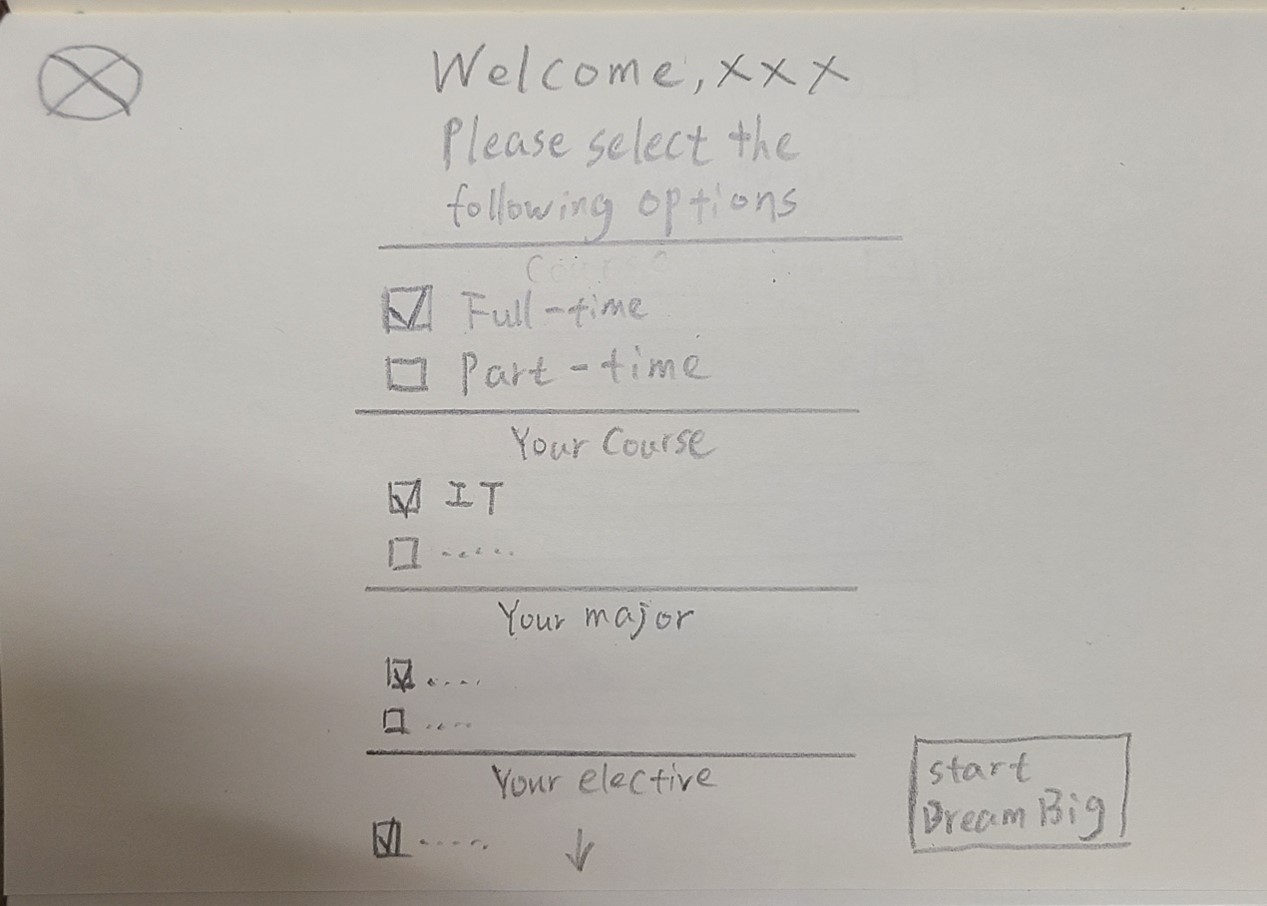 Welcome, xxx
Please select the
following options
Course
Full-time
Part-time
Your Course
IT
.....
Your major
.....
....
Your elective
.....
start
Dream Big